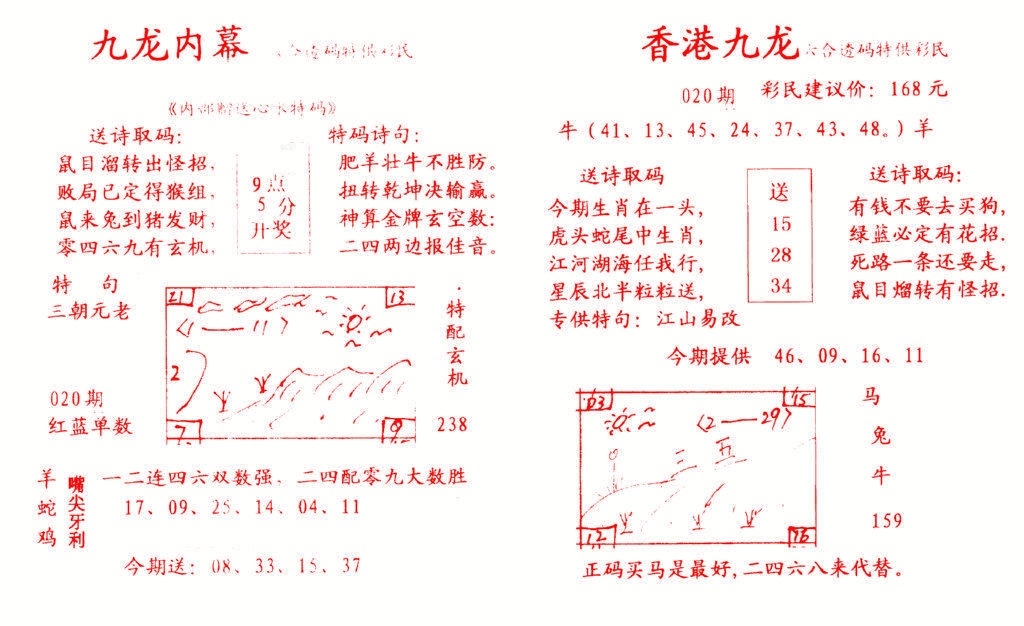 九龙内幕
合透码特供彩民
《内部赠送心水特码》
送诗取码：
鼠目溜转出怪招，
败局已定得猴组，
鼠来兔到猪发财，
零四六九有玄机，
9点
5分
开奖
特码诗句：
肥羊壮牛不胜防。
扭转乾坤决输赢。
神算金牌玄空数：
二四两边报佳音。
特 句
三朝元老
020期
红蓝单数
21
13
〈1——11〉
2
7
9
特配玄机
238
羊蛇鸡
嘴尖牙利
一二连四六双数强，二四配零九大数胜
17、09、25、14、04、11
今期送：08、33、15、37
香港九龙
六合透码特供彩民
020期
彩民建议价：168元
牛（41、13、45、24、37、43、48。）羊
送诗取码
今期生肖在一头，
虎头蛇尾中生肖，
江河湖海任我行，
星辰北半粒粒送，
专供特句：江山易改
送
15
28
34
送诗取码：
有钱不要去买狗，
绿蓝必定有花招．
死路一条还要走，
鼠目熘转有怪招．
今期提供 46、09、16、11
03
45
〈2——29〉
三五
12
16
马
兔
牛
159
正码买马是最好，二四六八来代替。